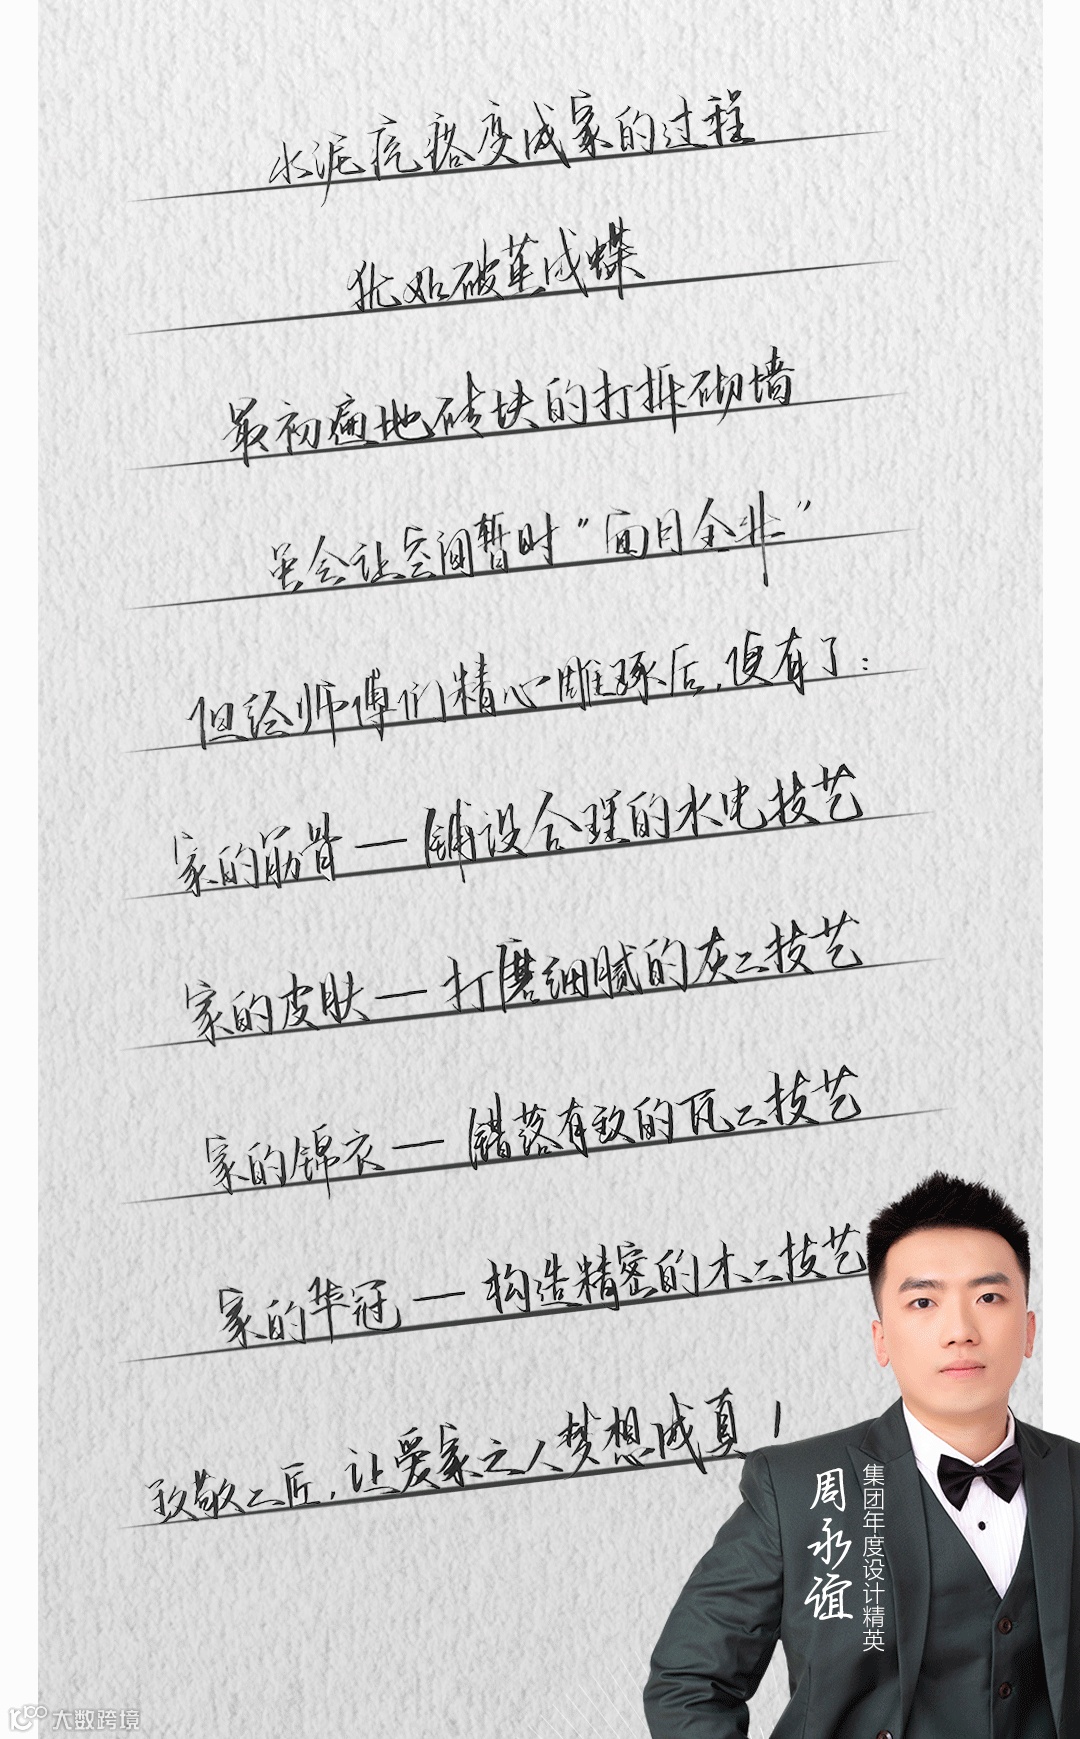 水泥疙瘩变成家的过程
犹如破茧成蝶
最初遍地砖块的打拆砌墙
虽会让空间暂时“面目全非”
但经师傅们精心雕琢后，便有了：
家的筋骨—铺设合理的水电技艺
家的皮肤—打磨细腻的灰工技艺
家的锦衣—错落有致的瓦工技艺
家的华冠—构造精密的木工技艺
致敬工匠，让爱家之人梦想成真！
集团年度设计精英
周永谊
大数跨境